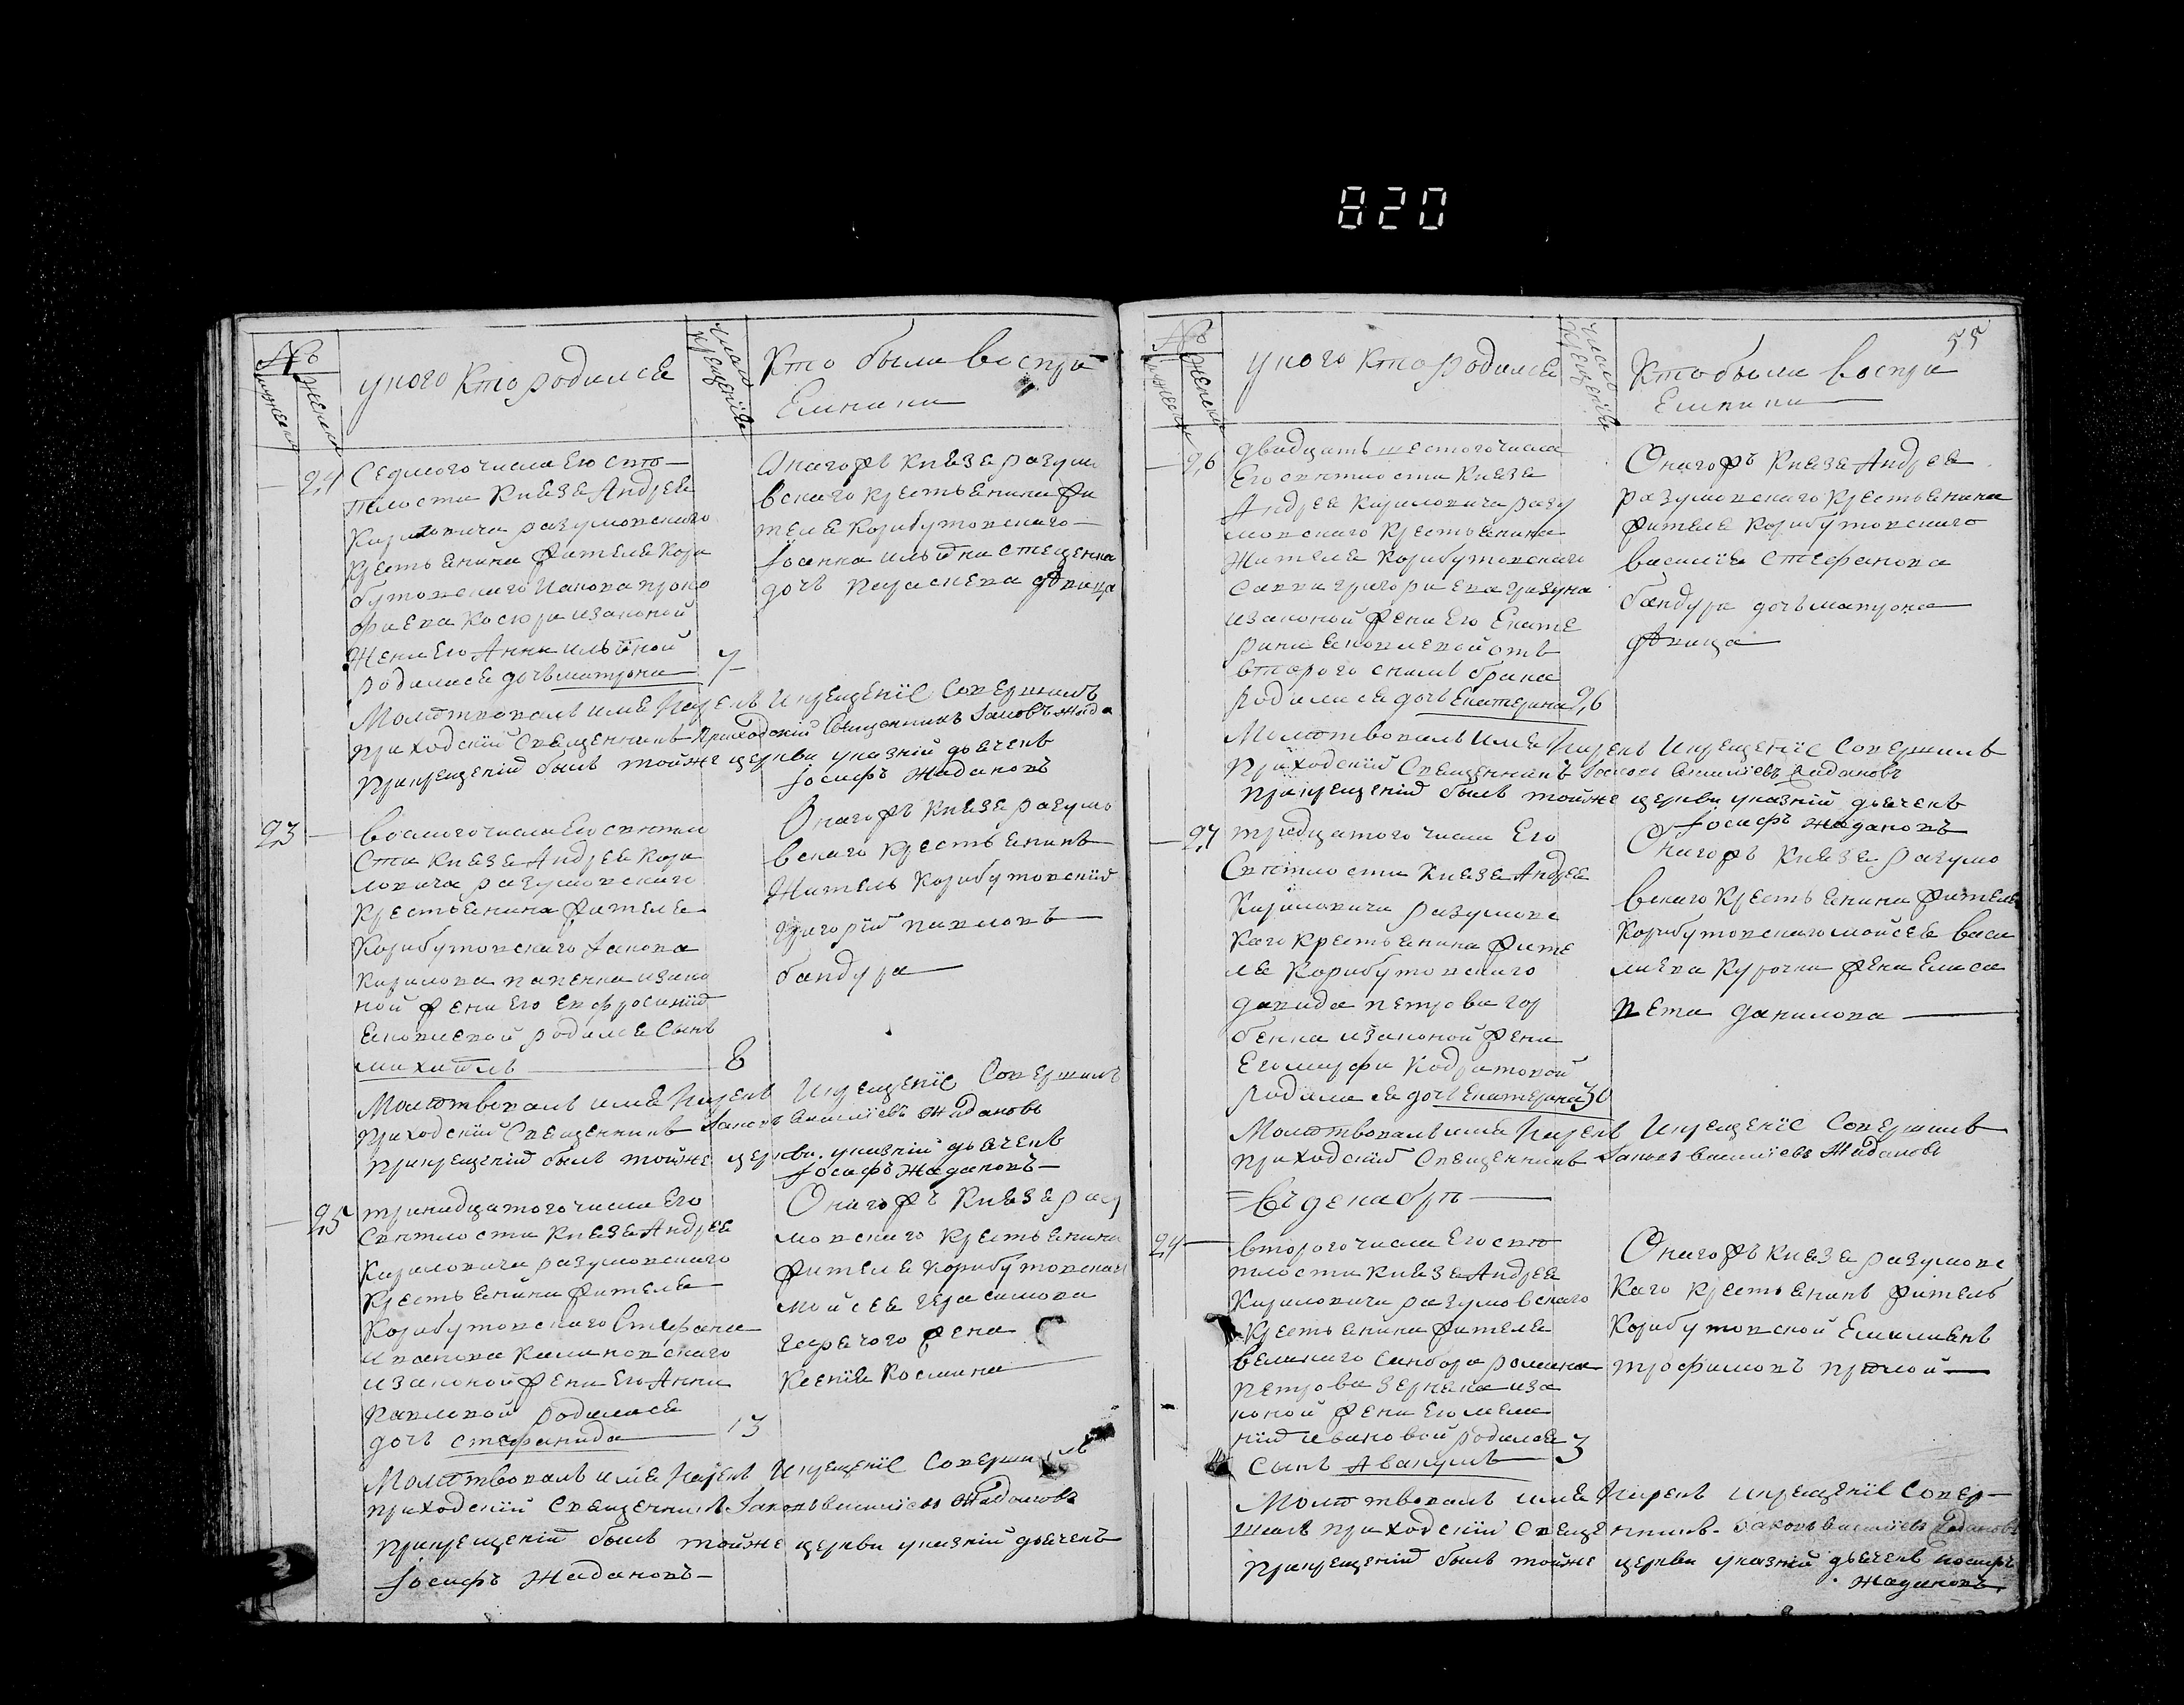 820
№
мужеска
женска
у кого кто родился
число крещенїя
Кто были воспри
Емники
24
Седмого числа Его свѣт
лости Князя Андрея
Кириловича разумовского
крестьянина жителя Кори
бутовского Иакова проко
фиева Косюри изаконой
жени Его Анни ильїной
родилася дочь матрона
7
Онагожъ Князя разумо
вского крестьянина жи
теля Корибутовского
Іоанна ильїна стеценка
дочь параскева дѣвица
Молитвовалъ имя нарекъ И крещенїе Совершилъ
приходскїй Священникъ Приходскїй Священникъ Іаковъ Жада
При крещенїй былъ тойже церкви указнїй дьячекъ
Іосифъ Жадановъ
23
восмого числа Его свѣтло
сти Князя Андрея Кори
ловича разумовского
Крестьянина жителя
Корибутовского Іакова
Кирилова изако
ной жени Его Евфросинїй
Яковлевой родился Сынъ
михаїлъ
8
Онагожъ Князя разумо
вского крестьянинъ
житель Корибутовскїй
григорїй павловъ
бандура
Молитвовалъ имя Нарекъ И крещенїе Совершилъ
приходскїй Священникъ Іаковъ Василїевъ Жадановъ
При крещенїй былъ тойже церкви указнїй дьячекъ
Іосифъ Жадановъ
25
тринадцатого числа Его
Свѣтлости Князя Андрея
Кириловича разумовского
Крестьянина жителя
Корибутовского Стефана
иванова Калиновского
изаконой жени Его Анни
Павловой родилася
дочь стефанида
13
Онагожъ Князя разу
мовского крестьянина
жителя Корибутовского
мойсея герасимова
жена
Ксенїя Космина
Молитвовалъ имя Нарекъ И крещенїе Совершилъ
приходскїй Священникъ Іаковъ Василїевъ Жадановъ
При крещенїй былъ тойже церкви указнїй дьячекъ
Іосифъ Жадановъ
55
№
мужеска
женска
у кого кто родился
число крещенїя
Кто были воспри
Емники
26
двадцать шестого числа
Его свѣтлости Князя
Андрея Кириловича разу
мовского Крестьянина
Жителя Корибутовского
Савви григориева
изаконой жени Его Екате
рини Яковлевой отъ
второго снимъ брака
родилася дочь Екатерина
26
Онагожъ Князя Андрея
разумовского Крестьянина
жителя Корибутовского
василїя стефанова
бандури дочь матрона
дѣвица
Молитвовалъ имя Нарекъ И крещенїе Совершилъ
Приходскїй Священникъ Іаковъ Василїевъ Жадановъ
При крещенїй былъ тойже церкви указнїй дьячекъ
Іосифъ Жадановъ
27
тридцатого числа Его
Свѣтлости Князя Андрея
Кириловича разумовс
кого Крестьянина жите
ля Корибутовского
давида петрова гор
бенка изаконой жени
Его марфи Кодратовой
родилася дочь Екатерина
30
Онагожъ Князя разумо
вского Крестьянина жителя
Корибутовского мойсея васи
лиева Курочки жена Елиса
вета данилова
Молитвовалъ имя Нарекъ И крещенїе Совершилъ
приходскїй Священникъ Іаковъ Василїевъ Жадановъ
Въ декабрѣ
24
второго числа Его свѣт
лости Князя Андрея
Кириловича разумовского
Крестьянина жителя
великого Самбора романа
петрова изa
коной жени Его мела
нїй ивановой родился
Сынъ Авакумъ
3
Онагожъ Князя разумовс
кого крестьянинъ житель
Корибутовской Емилиянъ
трофимовъ
Молитвовалъ имя Нарекъ И крещенїе Совер
шилъ приходскїй Священникъ Іаковъ Василїевъ Жадановъ
При крещенїй былъ тойже церкви указнїй дьячекъ Іосифъ
Жадановъ